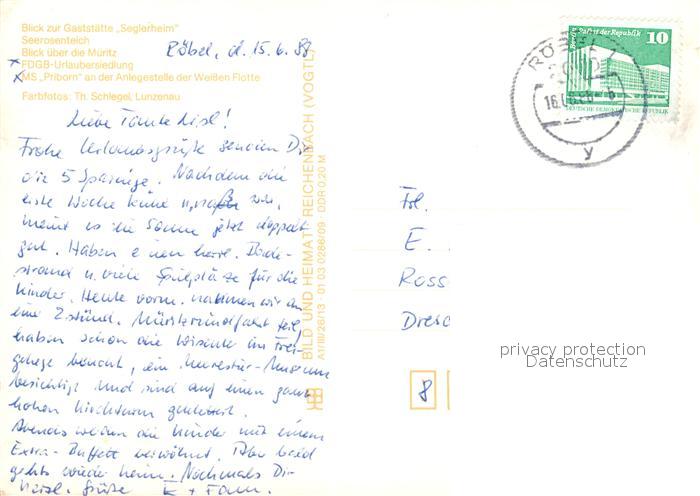 Blick zur Gaststätte „Seglerheim"
Seerosenteich
Blick über die Müritz
FDGB-Urlaubersiedlung
MS „Priborn" an der Anlegestelle der Weißen Flotte
Farbfotos: Th. Schlegel, Lunzenau
Röbel, d. 15.6.88
Liebe Tante Liesl!
Frohe Urlaubsgrüße senden Dir
die 5 Nachdem die
erste Woche kühl u. naß war,
meint es die Sonne jetzt doppelt
gut. Haben einen herrl. Bade-
strand u. viele Spielplätze für die
Kinder. Heute vorm. nahmen wir an
eine 2stünd. Müritzrundfahrt teil,
haben schon die Wisente im Frei-
gehege besucht, ein Meerestier-Museum
besichtigt und sind auf einen ganz
hohen Kirchturm geklettert.
Abends werden die Kinder mit einem
Extra-Buffett verwöhnt. Aber bald
gehts wieder heim. Nochmals Dir
herzl. Grüße K + Fam.
BILD UND HEIMAT REICHENBACH (VOGTL)
A1/III/26/13 01 03 0286/09 DDR 0,20 M
Berlin Palast der Republik
10
DEUTSCHE DEMOKRATISCHE REPUBLIK
RÖBEL
y
Frl.
E.
Ross
Dresd
8
privacy protection
Datenschutz